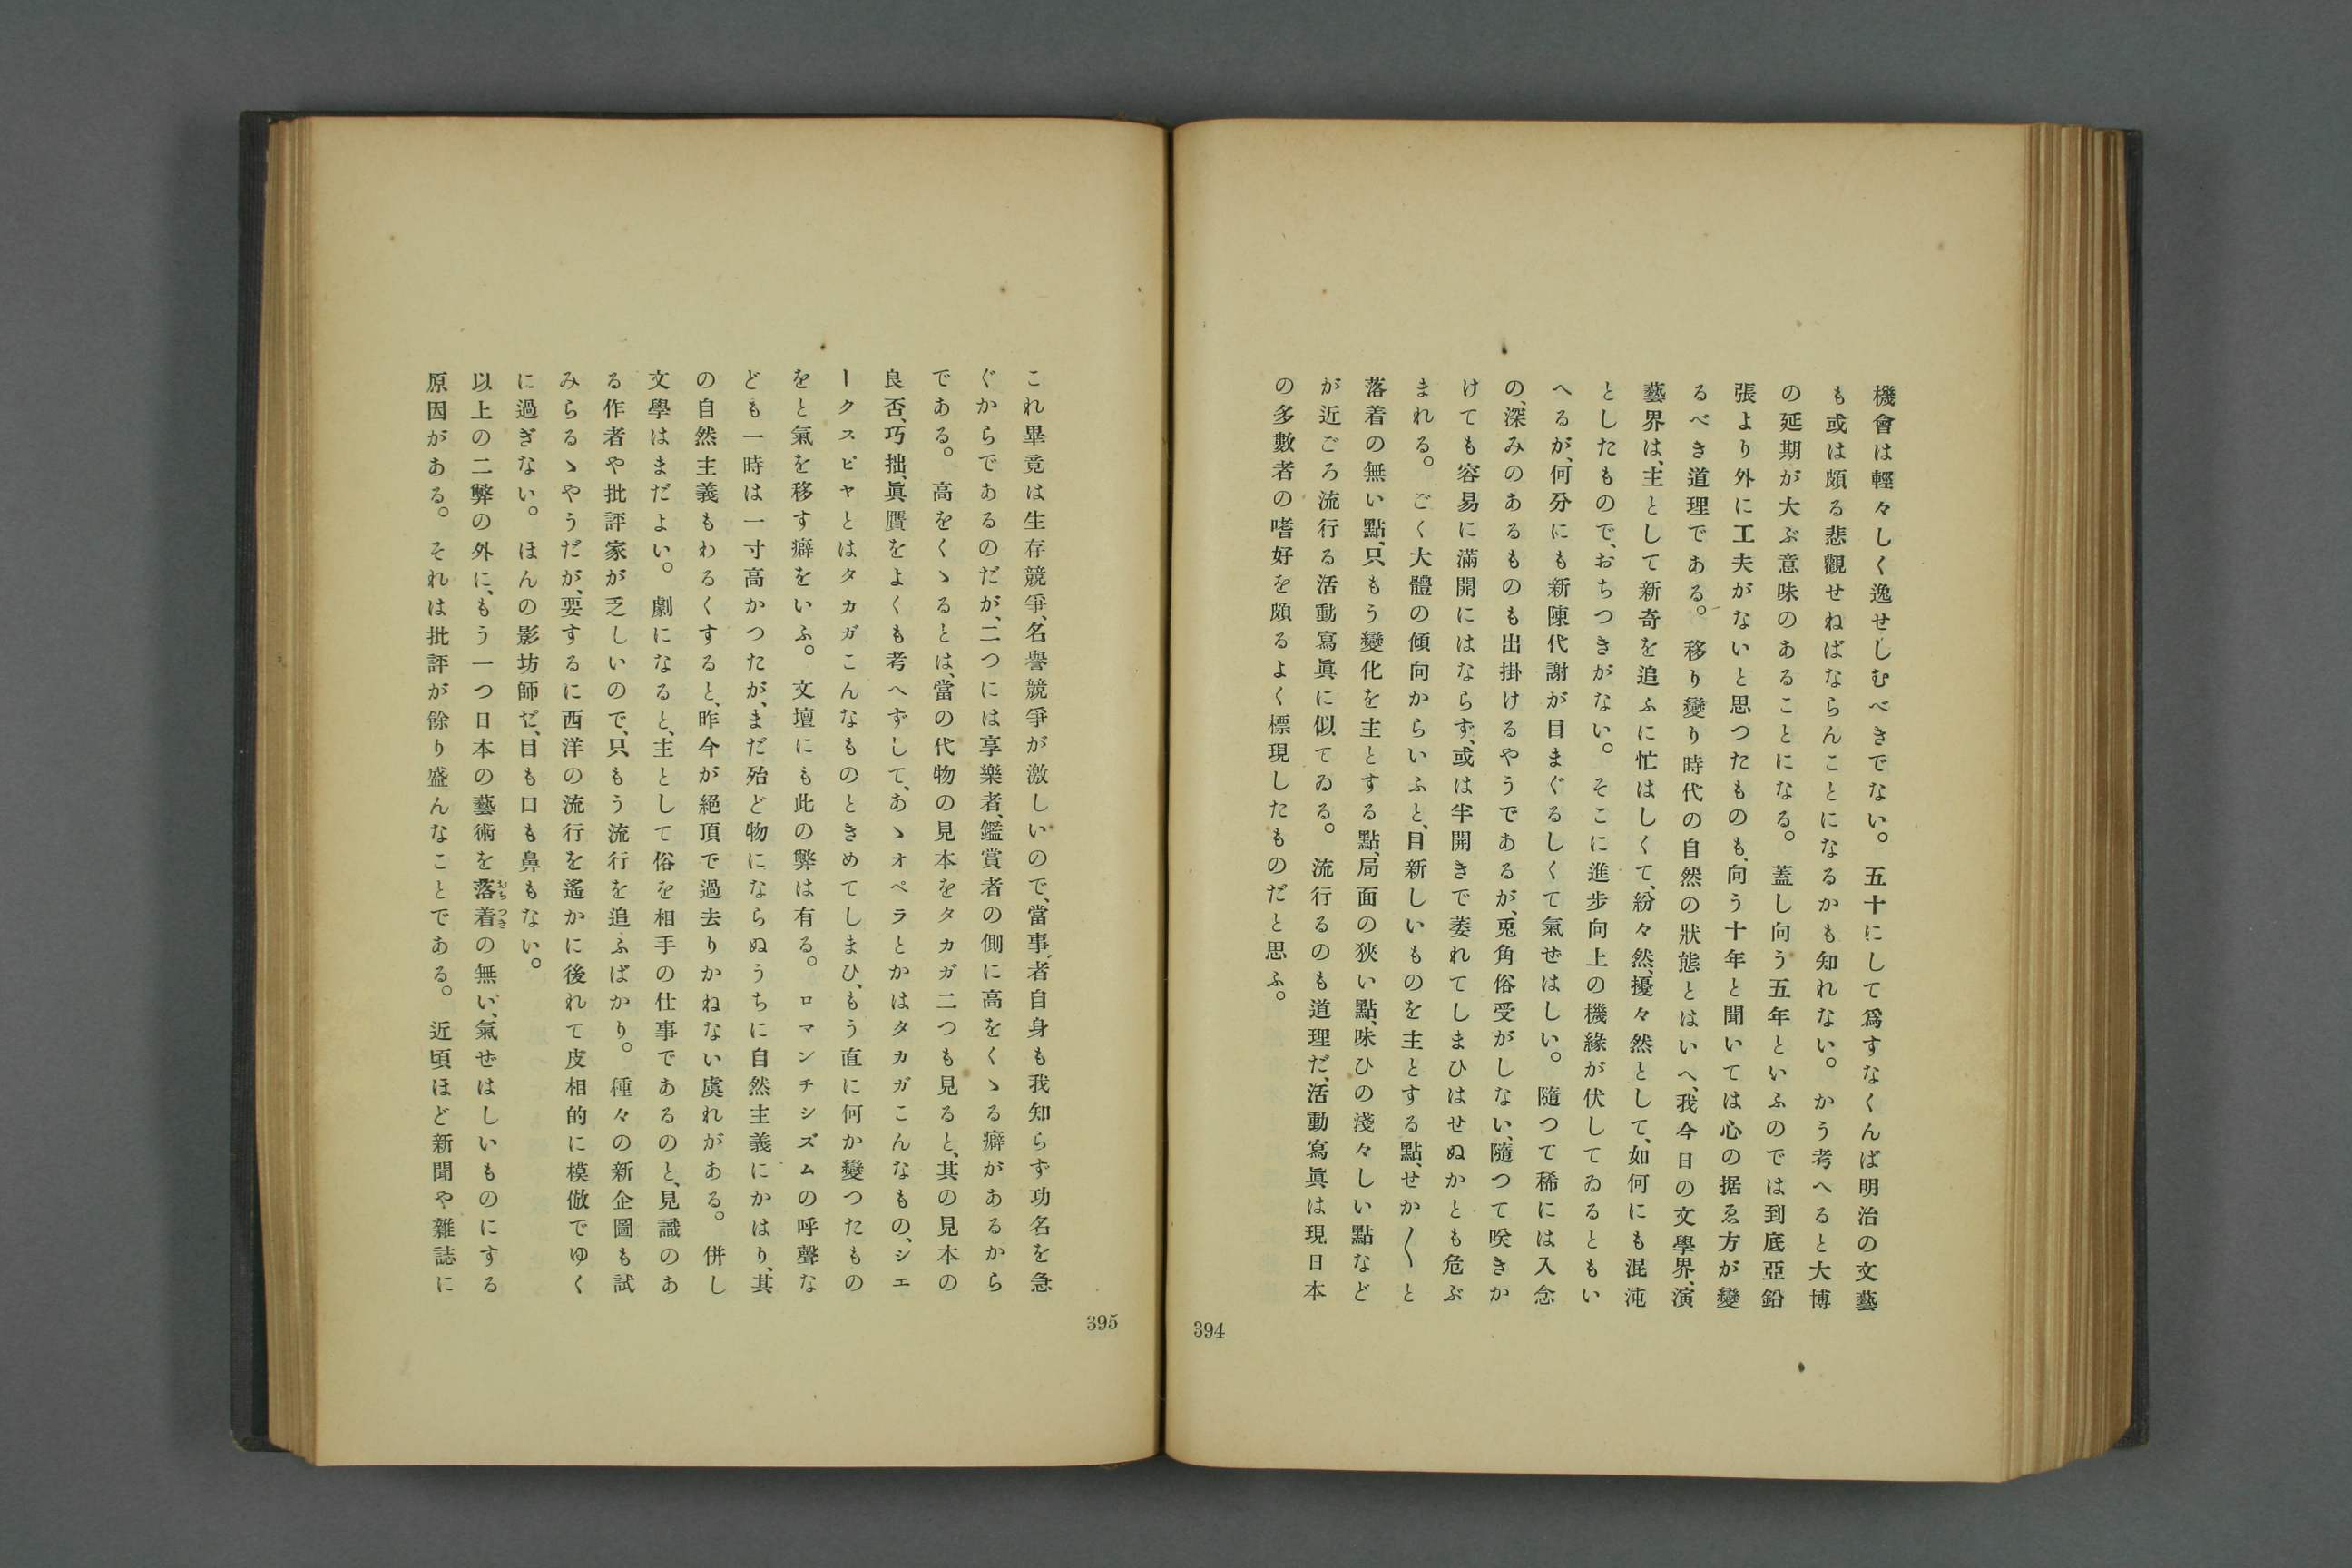 機會は輕々しく逸せしむべきでない。五十にして爲すなくんば明治の文藝
も或は頗る悲觀せねばならんことになるかも知れない。かう考へると大博
の延期が大ぶ意味のあることになる。蓋し向う五年といふのでは到底亞鉛
張より外に工夫がないと思つたものも、向う十年と聞いては心の据ゑ方が變
るべき道理である。移り變り時代の自然の狀態とはいへ、我今日の文學界、演
藝界は、主として新奇を追ふに忙はしくて、紛々然、擾々然として、如何にも混沌
としたもので、おちつきがない。そこに進歩向上の機緣が伏してゐるともい
へるが、何分にも新陳代謝が目まぐるしくて氣ぜはしい。隨つて稀には入念
の、深みのあるものも出掛けるやうであるが、兎角俗受がしない、隨つて咲きか
けても容易に滿開にはならず、或は半開きで萎れてしまひはせぬかとも危ぶ
まれる。ごく大體の傾向からいふと、目新しいものを主とする點、せか〱と
落着の無い點、只もう變化を主とする點、局面の狹い點、味ひの淺々しい點など
が近ごろ流行る活動寫眞に似てゐる。流行るのも道理だ、活動寫眞は現日本
の多數者の嗜好を頗るよく標現したものだと思ふ。
394
これ畢竟は生存競爭、名譽競爭が激しいので、當事者自身も我知らず功名を急
ぐからであるのだが、二つには享樂者、鑑賞者の側に高をくゝる癖があるから
である。高をくゝるとは、當の代物の見本をタカガ二つも見ると、其の見本の
良否、巧拙、眞贋をよくも考へずして、あゝオペラとかはタカガこんなもの、シエ
ークスピヤとはタカガこんなものときめてしまひ、もう直に何か變つたもの
をと氣を移す癖をいふ。文壇にも此の弊は有る。ロマンチシズムの呼聲な
ども一時は一寸高かつたが、まだ殆ど物にならぬうちに自然主義にかはり、其
の自然主義もわるくすると、昨今が絕頂で過去りかねない虞れがある。併し
文學はまだよい。劇になると、主として俗を相手の仕事であるのと、見識のあ
る作者や批評家が乏しいので、只もう流行を追ふばかり。種々の新企圖も試
みらるゝやうだが、要するに西洋の流行を遙かに後れて皮相的に模倣でゆく
に過ぎない。ほんの影坊師ぜ、目も口も鼻もない。
以上の二弊の外に、もう一つ日本の藝術を落着おちつきの無い、氣ぜはしいものにする
原因がある。それは批評が餘り盛んなことである。近頃ほど新聞や雜誌に
395